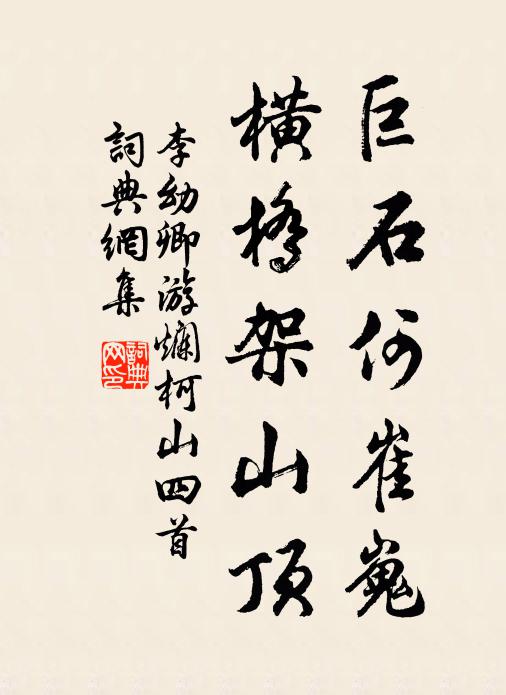 巨石何崔嵬
横桥架山顶
李幼卿游爛柯山四首
詞典網集
詞典網印